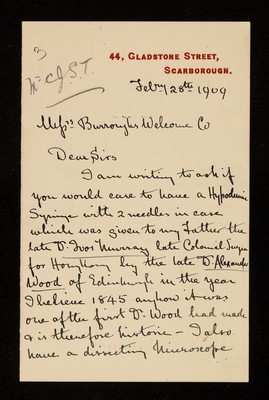 44, GLADSTONE STREET,
SCARBOROUGH.
Mr C.J.S.T.
Feby 28th 1909
Messrs Burroughs Welcome Co
Dear Sirs
I am writing to ask if
you would care to have a Hypodermic
Syringe with 2 needles in case
which was given to my Father the
late Dr Ivor Murray late Colonial Surgeon
for Hong Kong by the late Dr Alexander
Wood of Edinburgh in the year
I believe 1845 anyhow it was
one of the first Dr Wood had made
& is therefore historic – I also
have a dissecting Microscope